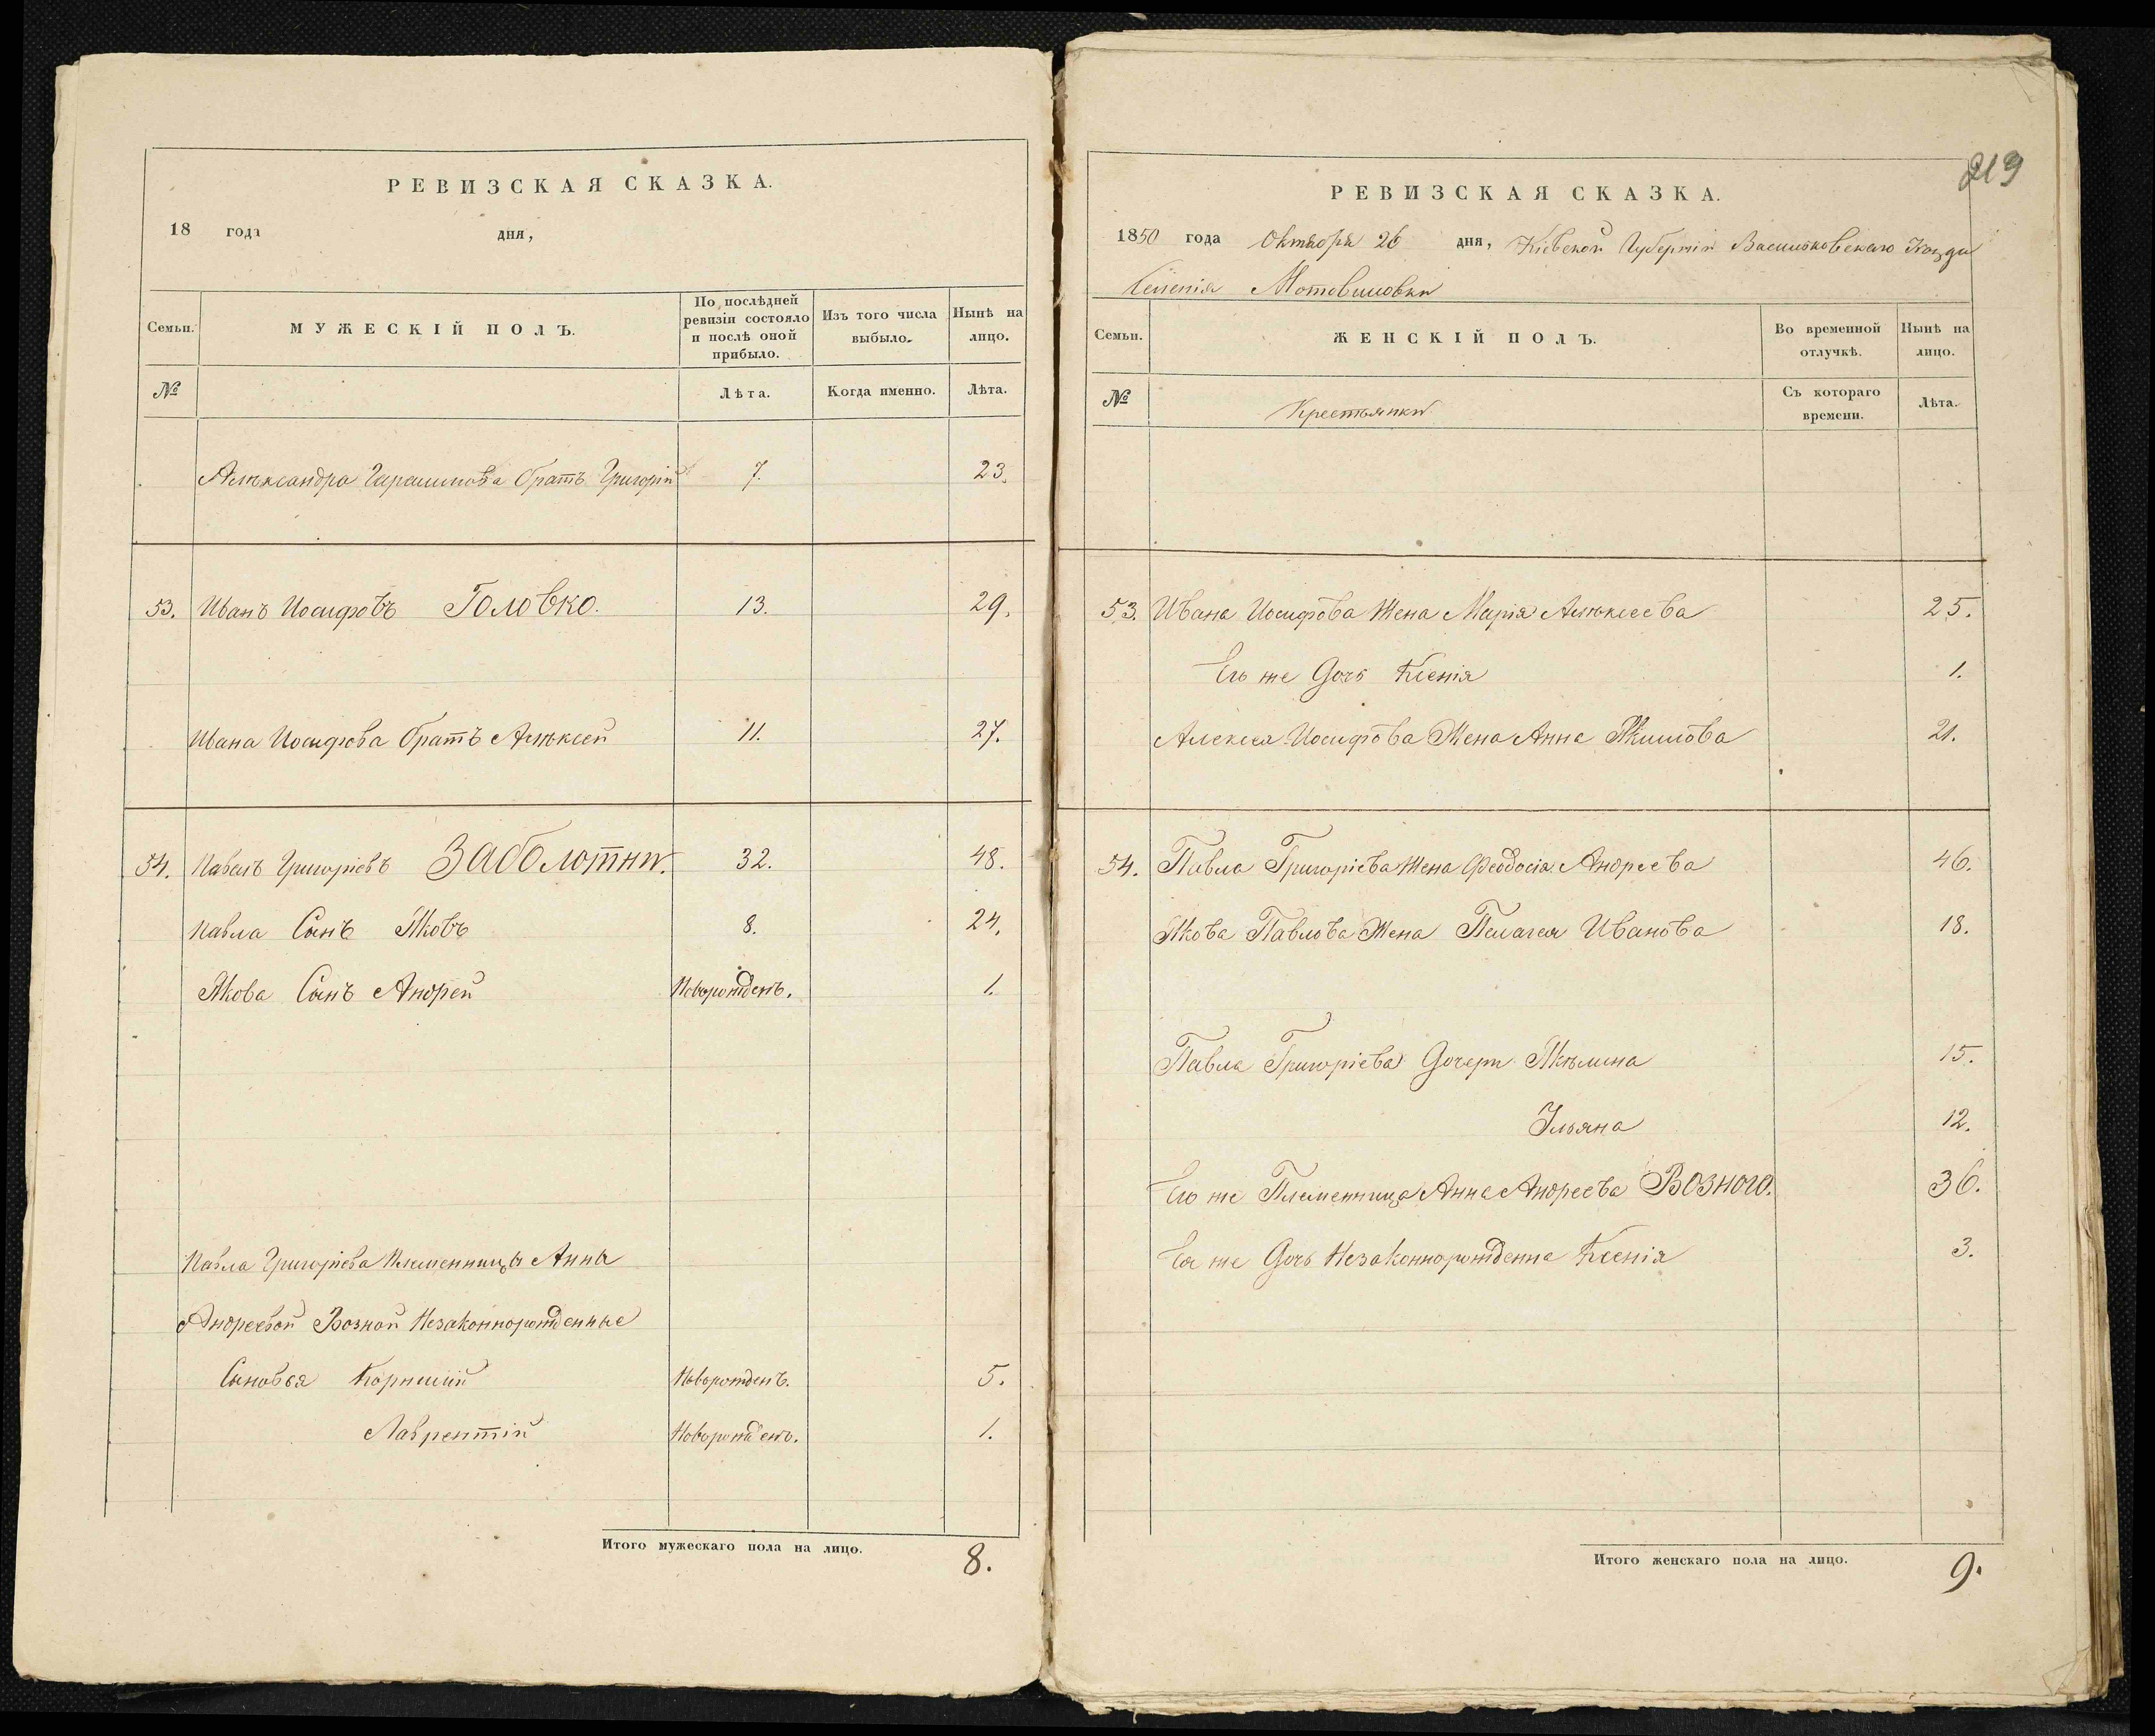 РЕВИЗСКАЯ СКАЗКА.
18 года дня,
Семьи.
МУЖЕСКІЙ ПОЛЪ.
По послѣдней
ревизіи состояло
и послѣ оной
прибыло.
Изъ того числа
выбыло.
Нынѣ на
лицо.
№
Лѣта.
Когда именно.
Лѣта.
Алѣксандра Гарасимова братъ Григорій 7. 23.
53. Иванъ Иосифовъ Головко. 13. 29.
Ивана Иосифова братъ Алѣксей 11. 27.
54. Павелъ Григоріевъ Заболотни. 32. 48.
Павла Сынъ Яковъ 8. 24.
Якова Сынъ Андрей Новорожденъ. 1.
Павла Григоріева Племенницы Анны
Андреевой Возной Незаконнорожденные
Сыновья Корнилій Новорожденъ. 5.
Лаврентій Новорожденъ. 1.
Итого мужескаго пола на лицо. 8.
219
РЕВИЗСКАЯ СКАЗКА.
1850 года Октября 26 дня, Кіевской Губерніи Васильковскаго
Селенія Мотовиловки
Семьи.
ЖЕНСКІЙ ПОЛЪ.
Во временной
отлучкѣ.
Нынѣ на
лицо.
№
Крестьянки
Съ котораго
времени.
Лѣта.
53. Ивана Иосифова Жена Марія Алѣксеева 25.
Его же Дочь Ксенія 1.
Алексея Иосифова Жена Анна Якимова 21.
54. Павла Григоріева Жена Феодосія Андреева 46.
Якова Павлова Жена Пелагея Иванова 18.
Павла Григоріева Дочери Якѣлина 15.
Ульяна 12.
Его же Племенница Анна Андреева Возного. 36.
Ея же Дочь Незаконнорожденна Ксенія 3.
Итого женскаго пола на лицо. 9.